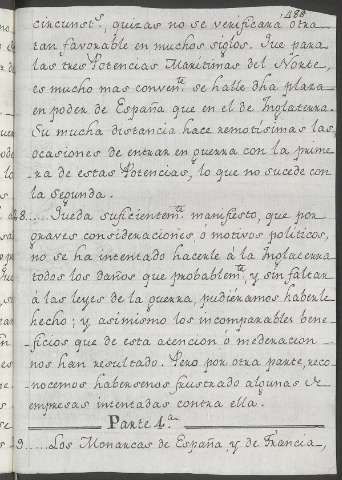 488
circunst.ˢ, quizas no se verificará otra
tan favorable en muchos siglos. Que para
las tres Potencias Maritimas del Norte,
es mucho mas conven.ᵗᵉ se halle dha plaza
en poder de España que en el de Inglaterra.
Su mucha distancia hace remotisimas las
ocasiones de entrar en guerra con la prime-
ra de estas Potencias, lo que no sucede con
la segunda.
48..... Queda suficientem.ᵗᵉ manifesto, que por
graves consideraciones, ó motivos politicos,
no se ha intentado hacerle á la Inglaterra
todos los daños que probablem.ᵗᵉ, y sin faltar
á las leyes de la guerra, pudieramos haberle
hecho; y asimismo los incomparables bene-
ficios que de esta atencion ó moderacion
nos han resultado. Pero por otra parte, reco-
nocemos habersenos frustrado algunas
empresas intentadas contra ella.
Parte 4.ª
9..... Los Monarcas de España, y de Francia,